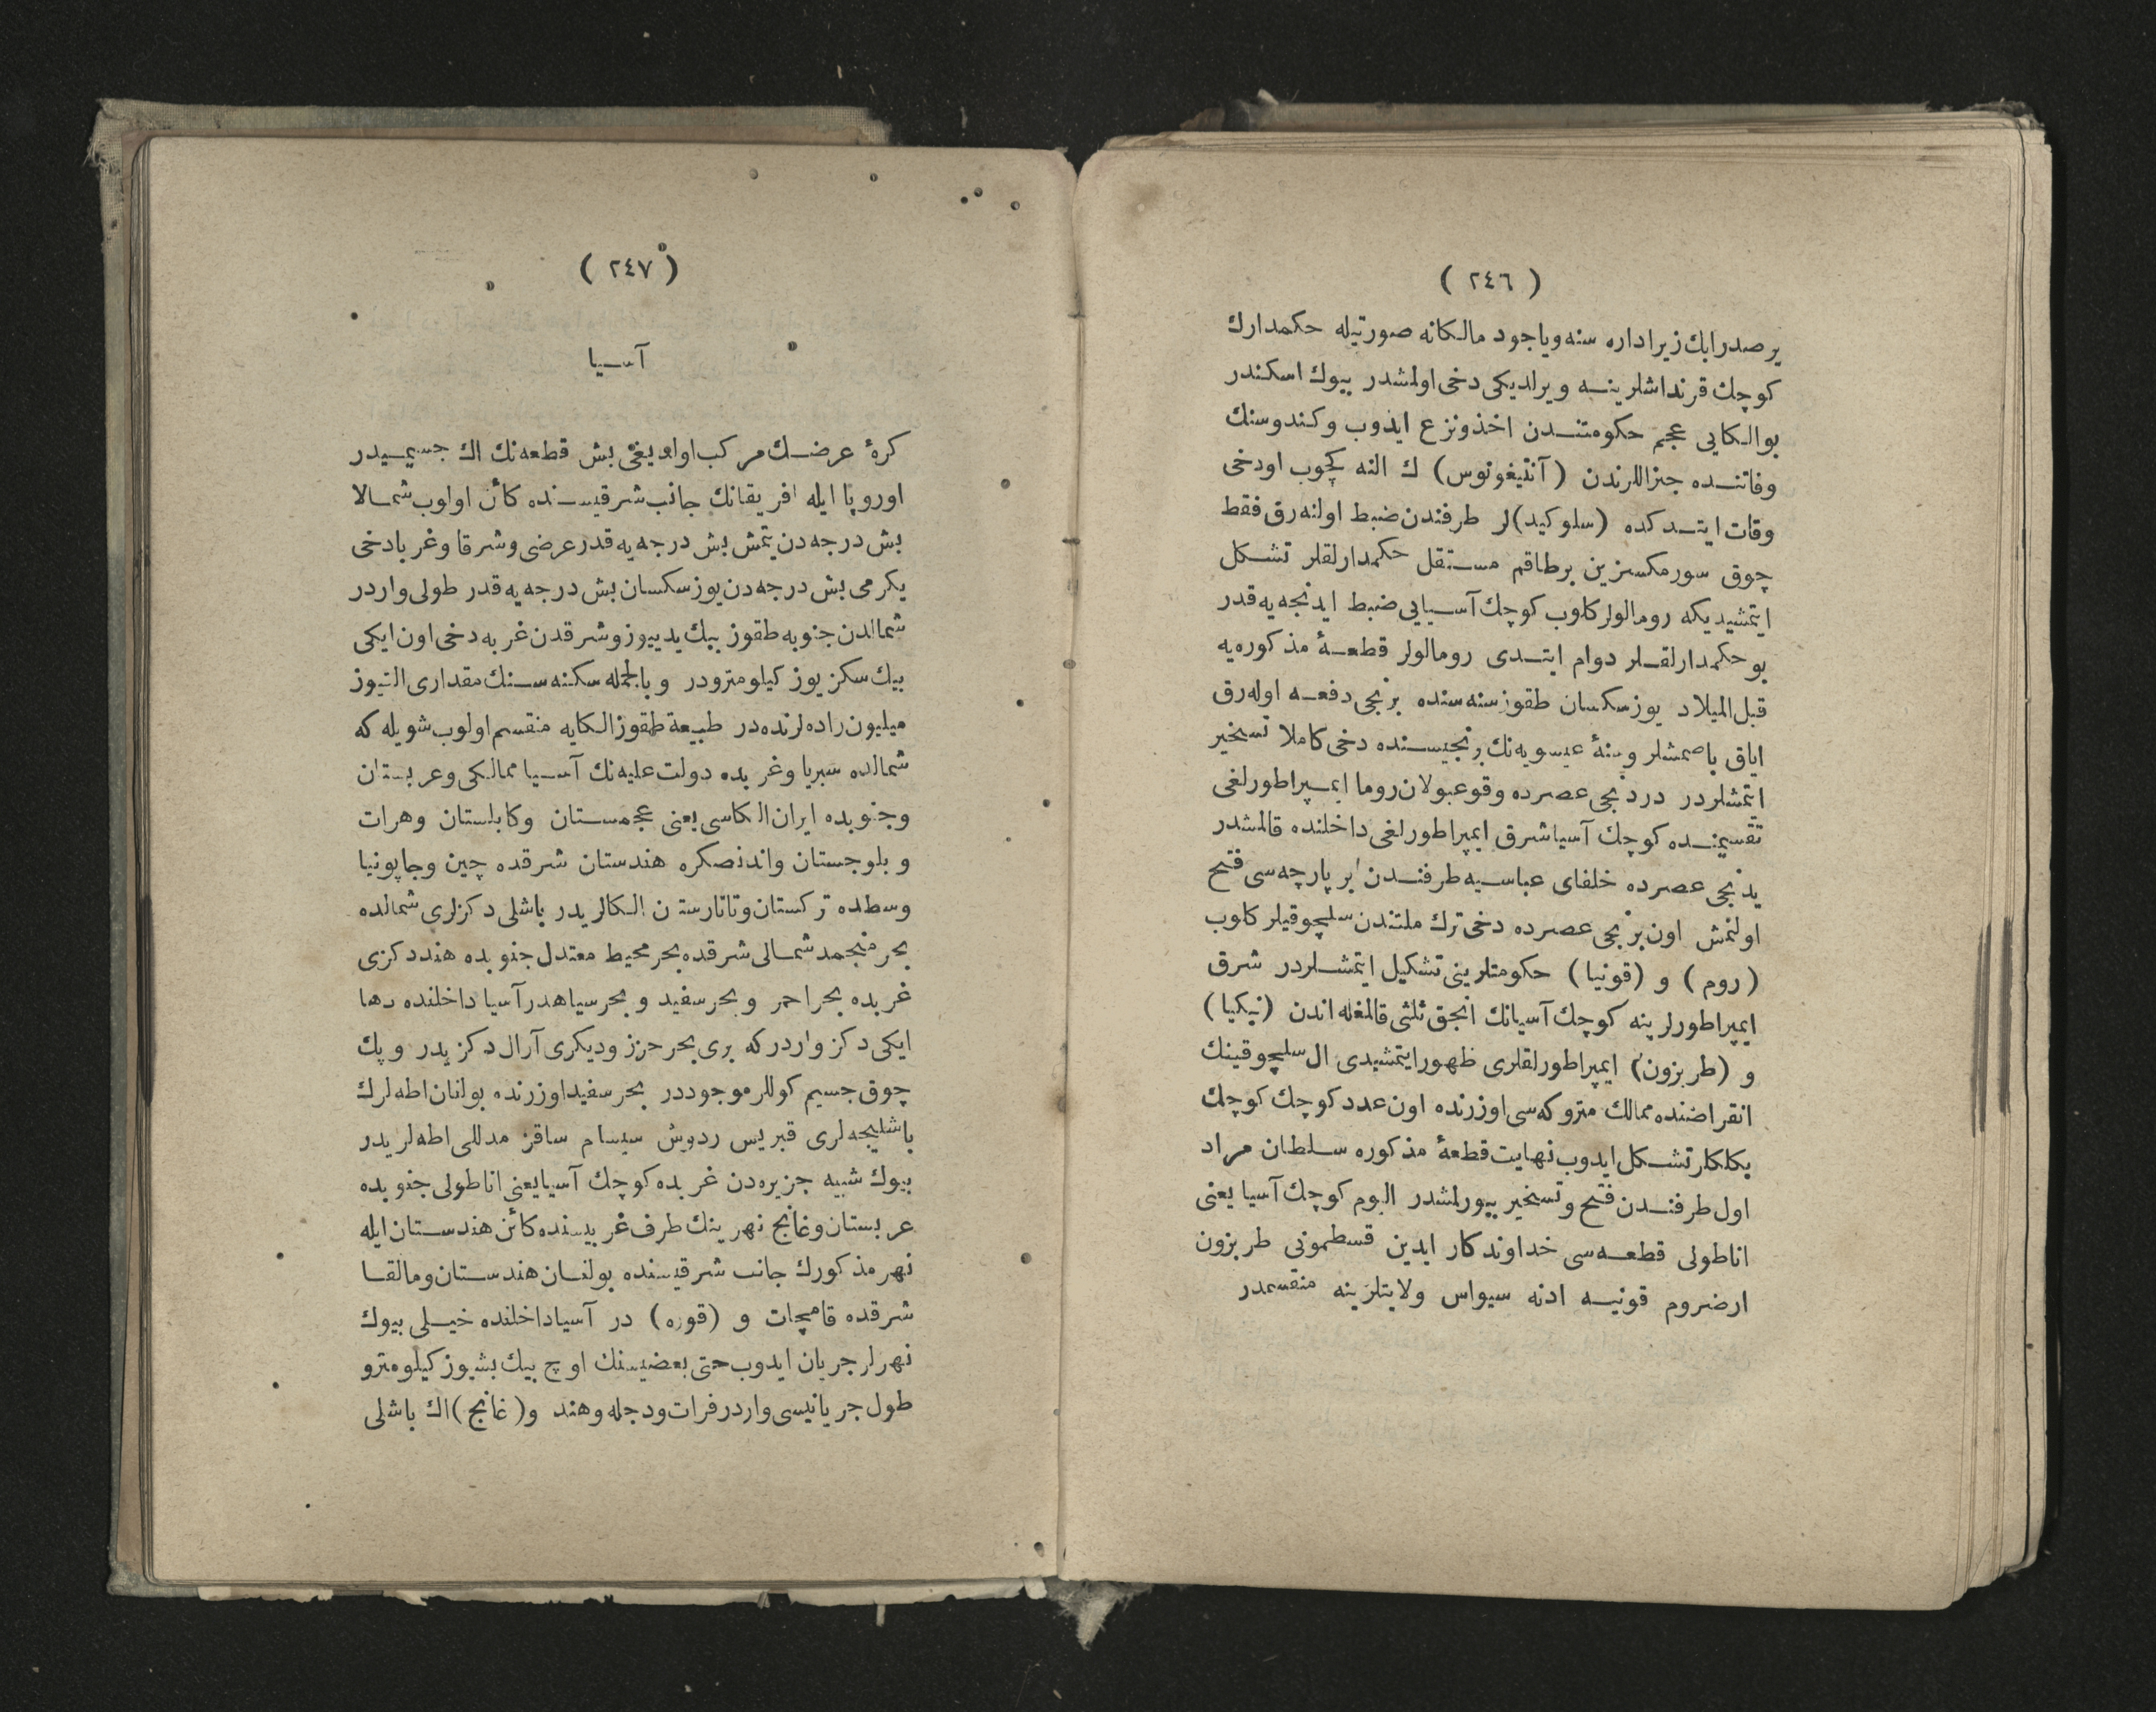 ( ٢٤٦ )
بر صدرابك زیر اداره سنه ویاجود مالکانه صورتیله حکمدارك
کوچك قرنداشلرینه ویرلدیکی دخی اولمشدر بیوك اسکندر
بوالکایی عجم حکومتندن اخذ ونزع ایدوب وکندوسنك
وفاتنده جنراللرندن (آنتیغونوس) ك النه کچوب اودخی
وفات ایتدکده (سلوکید)لر طرفندن ضبط اولنه رق فقط
چوق سورمکسزین برطاقم مستقل حکمدارلقلر تشکل
ایتمشیدیکه رومالولر کلوب کوچك آسیایی ضبط ایدنجه یه قدر
بو حکمدارلقلر دوام ایتدی رومالولر قطعۀ مذکوره یه
قبل المیلاد یوز سکسان طقوز سنه سنده برنجی دفعه اوله رق
ایاق باصمشلر وسنۀ عیسویه نك برنجیسنده دخی کاملا تسخیر
ایتمشلردر دردنجی عصرده وقوعبولان روما ایمپراطورلغی
تقسیمنده کوچك آسیا شرق ایمپراطورلغی داخلنده قالمشدر
یدنجی عصرده خلفای عباسیه طرفندن بر پارچه سی فتح
اولنمش اون برنجی عصرده دخی ترك ملتندن سلچوقیلر کلوب
(روم) و (قونیا) حکومتلرینی تشکیل ایتمشلردر شرق
ایمپراطورلرینه کوچك آسیانك انجق ثلثی قالمغله اندن (نیکیا)
و (طربزون) ایمپراطورلقلری ظهور ایتمشیدی ال سلچوقینك
انقراضنده ممالك متروکه سی اوزرنده اون عدد کوچك کوچك
بکلکلر تشکل ایدوب نهایت قطعۀ مذکوره سلطان مراد
اول طرفندن فتح وتسخیر بیورلمشدر الیوم کوچك آسیا یعنی
اناطولی قطعه سی خداوندکار ایدین قسطمونی طربزون
ارضروم قونیه ادنه سیواس ولایتلرینه منقسمدر
( ٢٤٧ )
آسیا
کرۀ عرضك مرکب اولدیغی بش قطعه نك اك جسیمیدر
اوروپا ایله افریقانك جانب شرقیسنده کائن اولوب شمالا
بش درجه دن یتمش بش درجه یه قدر عرضی وشرقا وغربا دخی
یکرمی بش درجه دن یوز سکسان بش درجه یه قدر طولی واردر
شمالدن جنوبه طقوز بیك یدییوز وشرقدن غربه دخی اون ایکی
بیك سکز یوز کیلومترودر وبالجمله سکنه سنك مقداری التیوز
میلیون راده لرنده در طبیعة طقوز الکایه منقسم اولوب شویله که
شمالده سبریا وغربده دولت علیه نك آسیا ممالکی وعربستان
وجنوبده ایران الکاسی یعنی عجمستان وکابلستان وهرات
و بلوجستان واندنصکره هندستان شرقده چین وجاپونیا
وسطده ترکستان وتاتارستان الکالریدر باشلی دکزلری شمالده
بحر منجمد شمالی شرقده بحر محیط معتدل جنوبده هند دکزی
غربده بحر احمر و بحر سفید و بحر سیاهدر آسیا داخلنده دها
ایکی دکز واردرکه بری بحر حزز ودیکری آرال دکزیدر و پك
چوق جسیم کوللر موجوددر بحر سفید اوزرنده بولنان اطه لرك
باشلیجه لری قبریس ردوس سیسام ساقز مدللی اطه لریدر
بیوك شبیه جزیره دن غربده کوچك آسیا یعنی اناطولی جنوبده
عربستان وغانج نهرینك طرف غربیسنده کائن هندستان ایله
نهر مذکورك جانب شرقیسنده بولنان هندستان ومالقا
شرقده قامچات و (قوره) در آسیا داخلنده خیلی بیوك
نهرلر جریان ایدوب حتی بعضیسنك اوچ بیك بشیوز کیلومترو
طول جریانیسی واردر فرات ودجله وهند و( غانج )اك باشلی